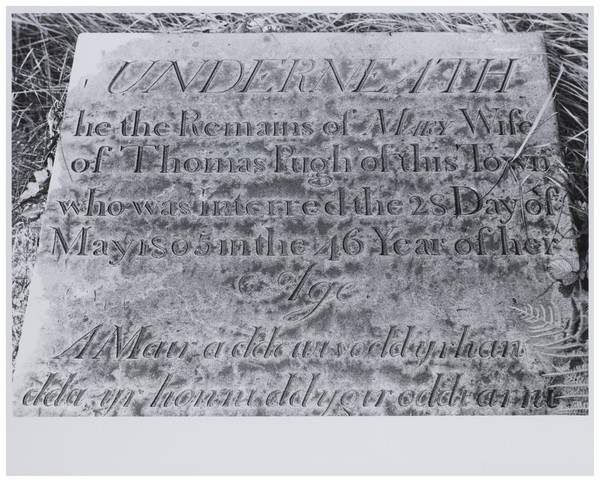 UNDERNEATH
lie the Remains of Mary Wife
of Thomas Pugh of this Town
who was interred the 28 Day of
May 1805 in the 46 Year of her
Age
A Mair a ddewisodd y rhan
dda, yr hon ni ddygir oddi arni